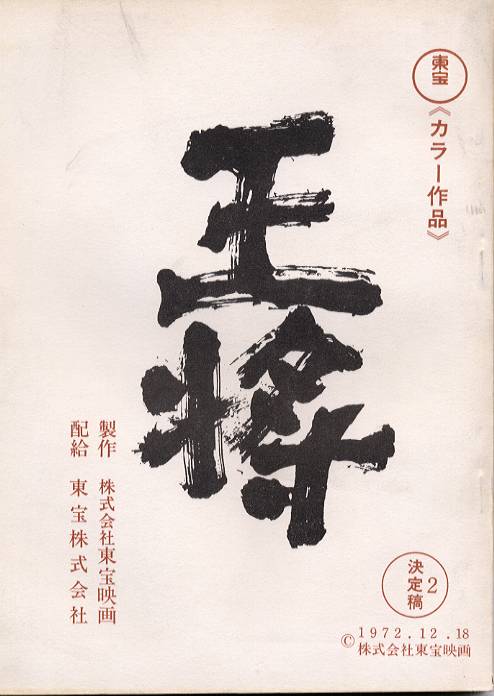 東宝
《カラー作品》
王将
製作 株式会社東宝映画
配給 東宝株式会社
決定稿 2
1972.12.18
©株式会社東宝映画